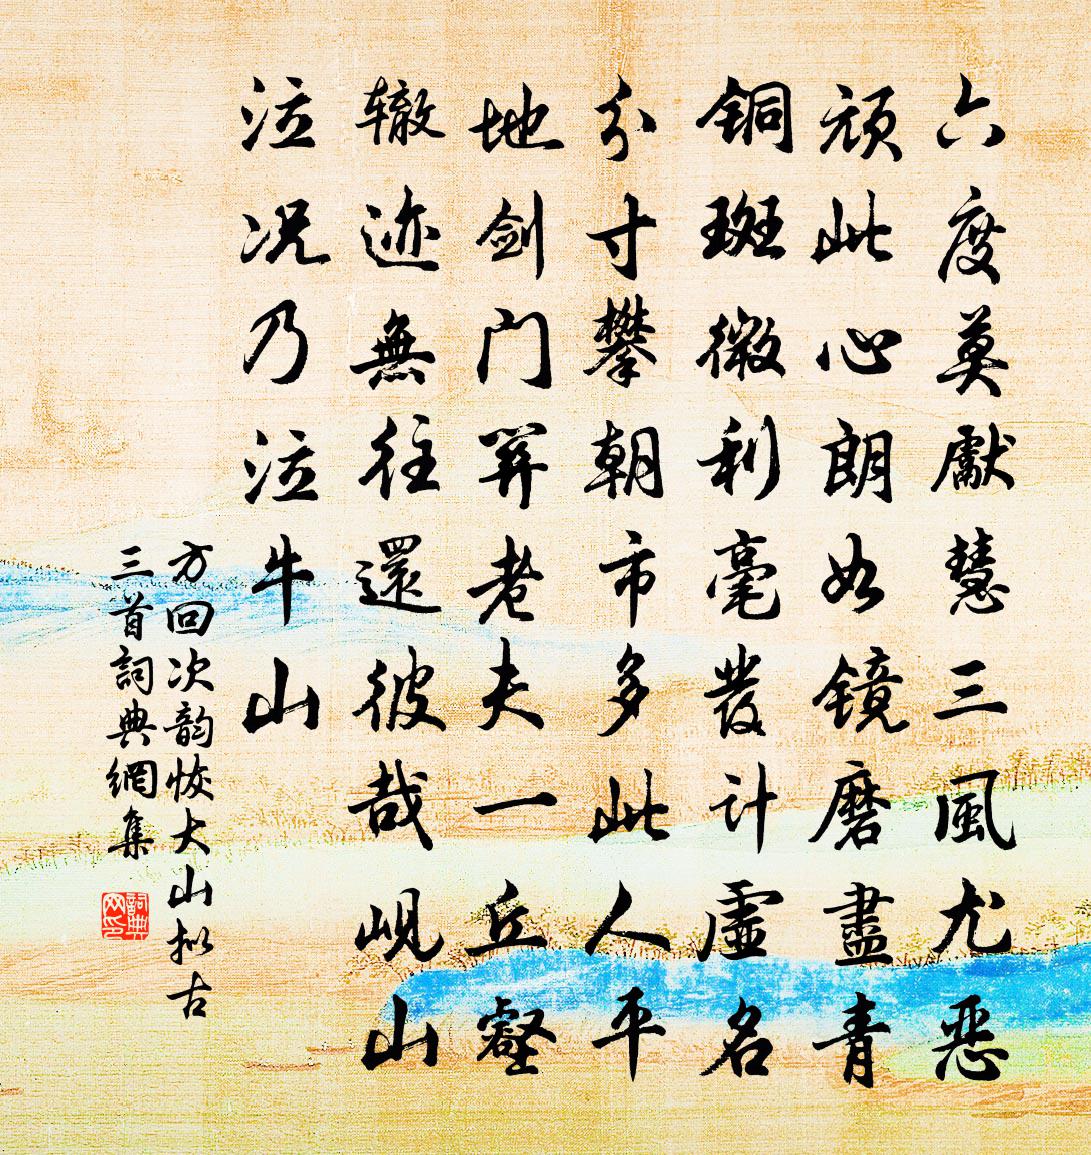 六度莫獻慧三風尤惡
顽此心朗如镜磨盡青
銅斑微利毫發计虚名
分寸攀朝市多此人平
地剑门开老夫一丘壑
辙迹無往還彼哉岘山
泣况乃泣牛山
方回次韵恢大山拟古
三首詞典網集
詞典网印